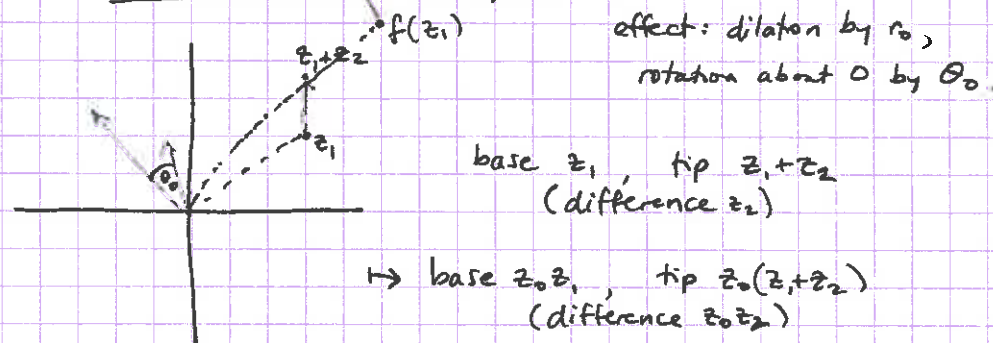 f(z₁)
z₁+z₂
z₁
θ₀
effect: dilation by r₀,
rotation about 0 by θ₀.
base z₁, tip z₁+z₂
(difference z₂)
↦ base z₀z₁, tip z₀(z₁+z₂)
(difference z₀z₂)